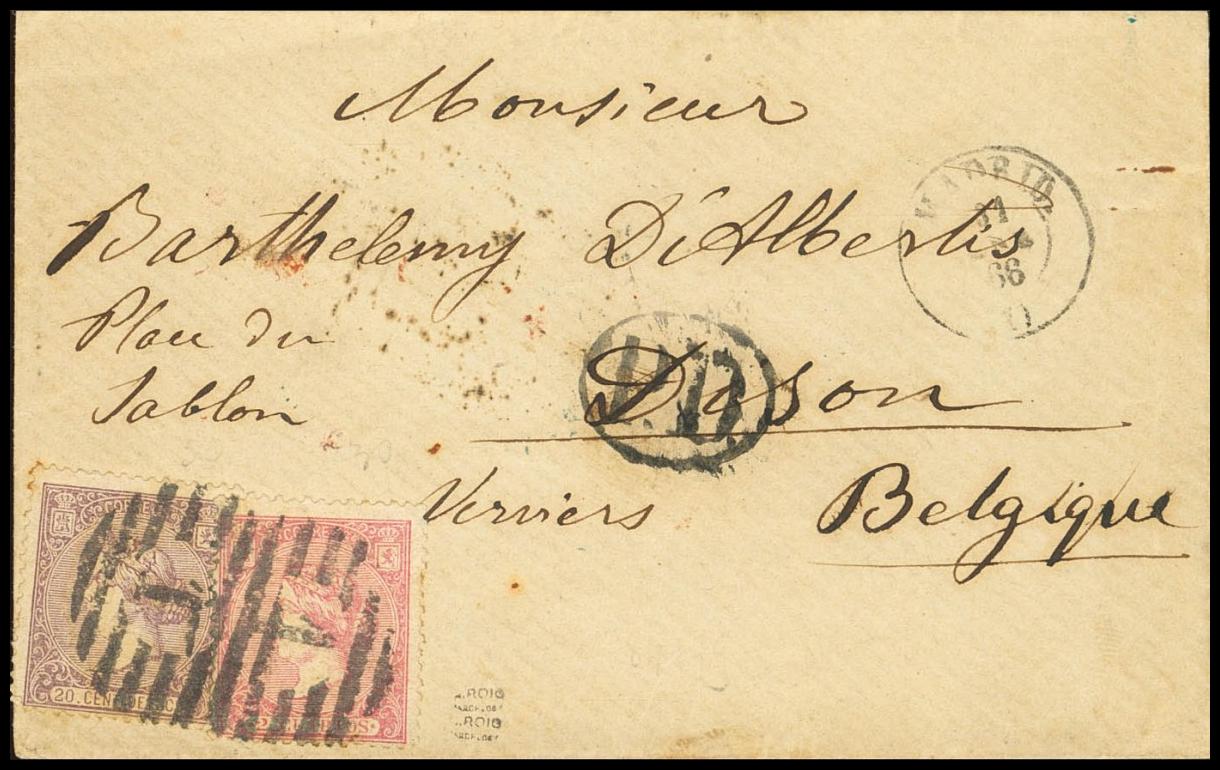 Monsieur
Barthelemy D'Albertis
Place du
Sablon
Dison
Verviers
Belgique
MADRID
66
P.D.
CORREOS
20. CENT. DE
ROIG
ROIG